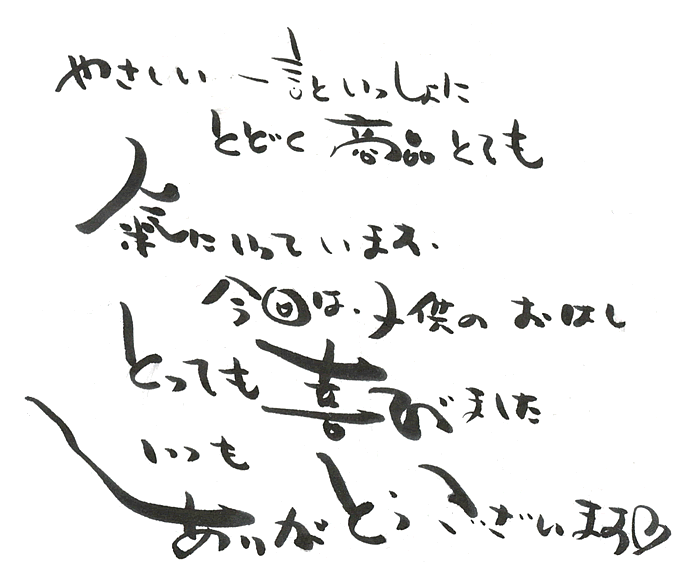 やさしい一言といっしょに
とどく商品とても
氣にいっています.
今回は.子供のおはし
とっても喜びました
いつも
ありがとうございます♡